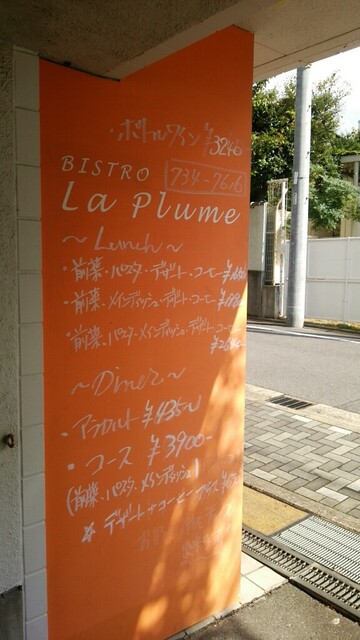 ・ボトルワイン ¥3240
BISTRO
734-7616
La Plume
～Lunch～
・前菜・パスタ・デザート・コーヒー
・前菜・メインディッシュ・デザート・コーヒー
・前菜・パスタ・メインディッシュ・デザート・コーヒー
～Diner～
・アラカルト ¥435～
・コース ¥3900-
(前菜・パスタ・メインディッシュ)
※デザート+コーヒー プラス